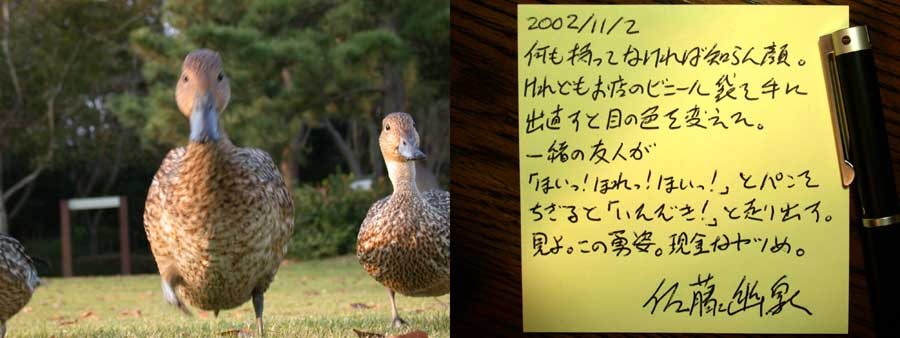 2002/11/2
何も持ってなければ知らん顔。
けれどもお店のビニール袋を手に
出直すと目の色を変えて。
一緒の友人が
「ほいっ!ほれっ!ほいっ!」とパンを
ちぎると「いんどき!」と走り出す。
見よ。この勇姿。現金なヤツめ。
佐藤